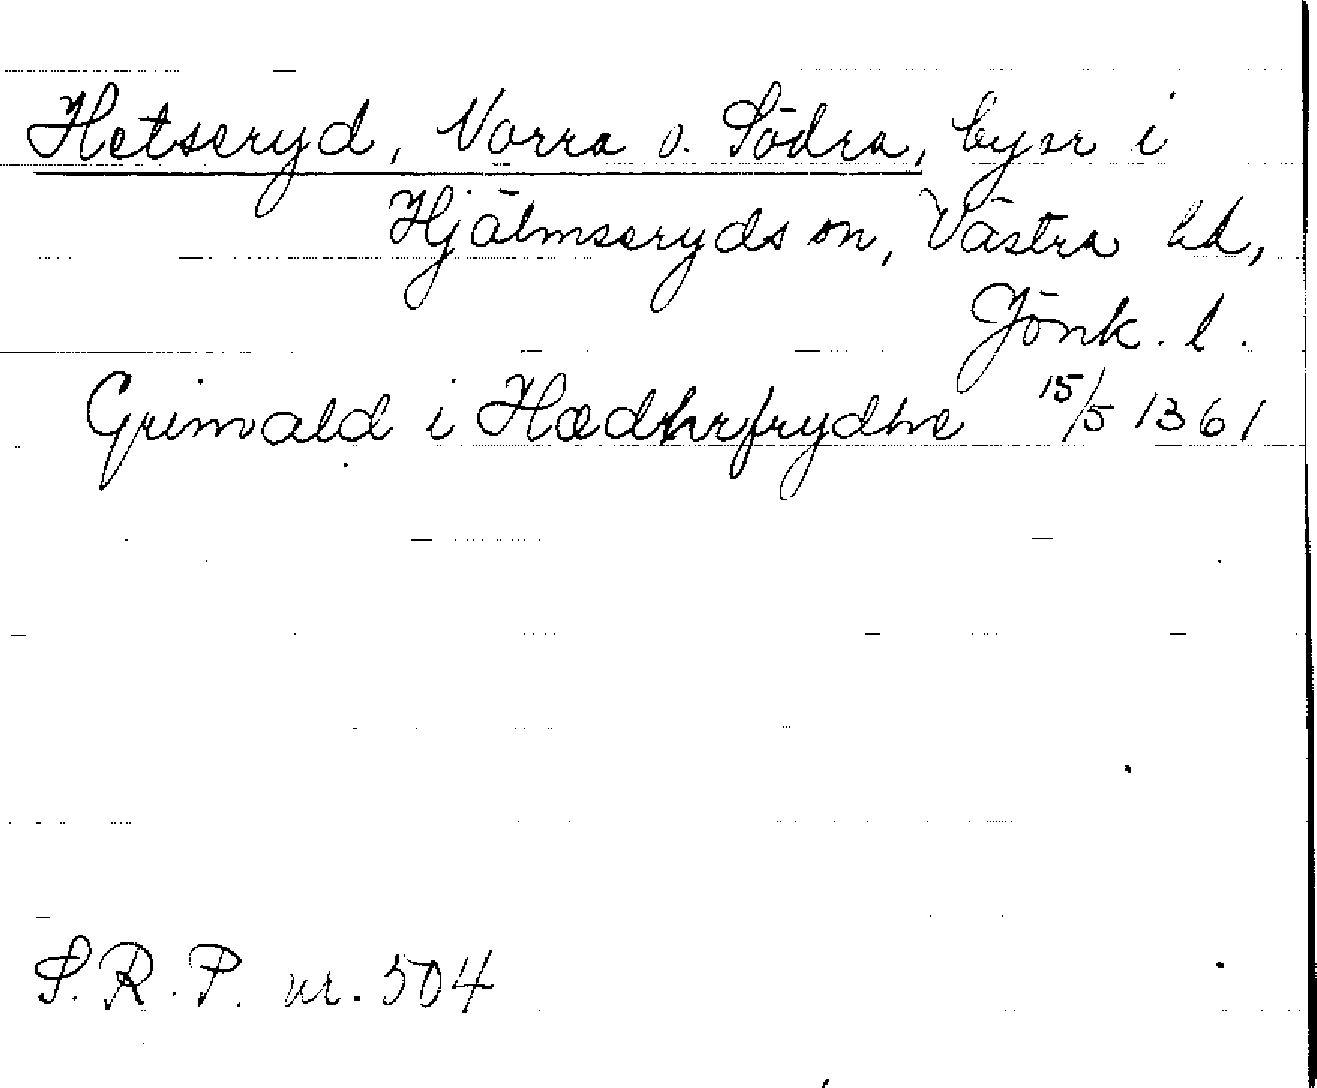 Hetseryd, Norra o. Södra, byar i
Hjälmseryds sn, Västra hd,
Jönk. l.
Grimvald i Hædhrsrydhe 15/5 1361
S.R.P. nr. 504